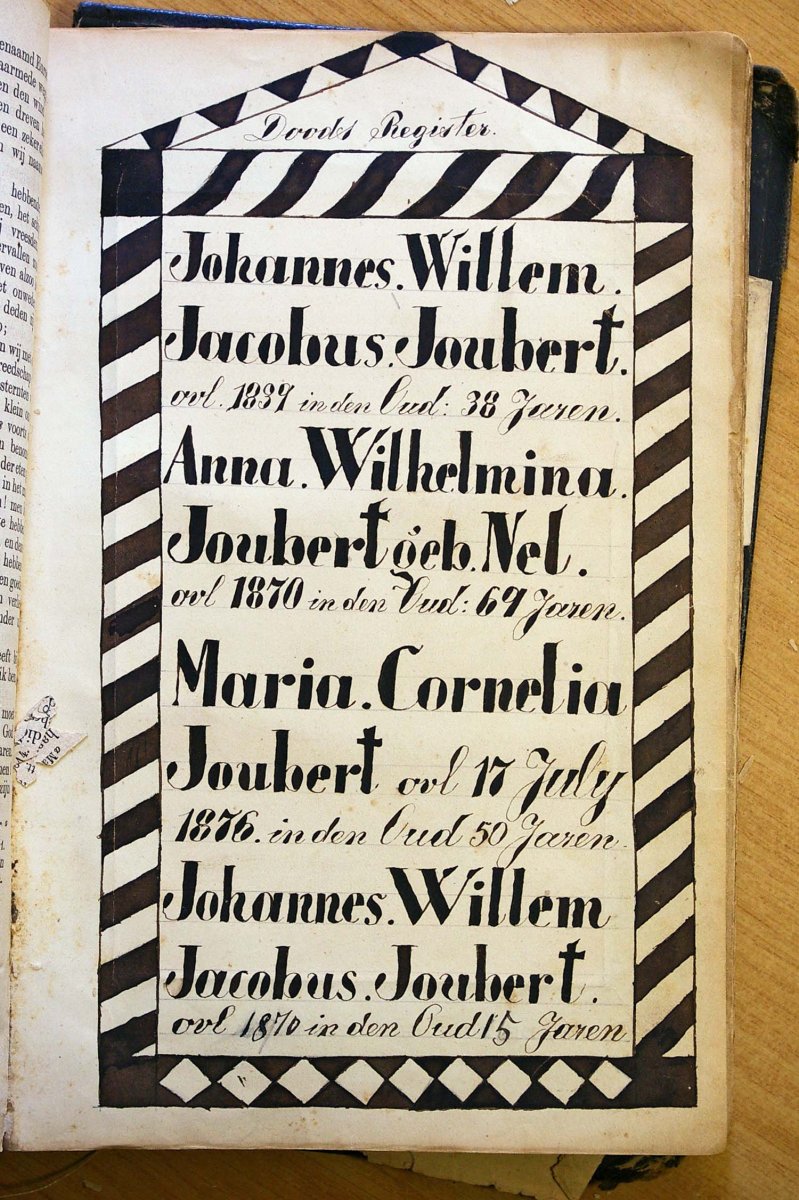 Doods Register.
Johannes. Willem.
Jacobus. Joubert.
ovl. 1839 in den Oud: 38 Jaren.
Anna. Wilhelmina.
Joubert geb. Nel.
ovl 1870 in den Oud: 69 Jaren.
Maria. Cornelia
Joubert ovl 17 July
1876. in den Oud 50 Jaren.
Johannes. Willem
Jacobus. Joubert.
ovl 1870 in den Oud 15 Jaren